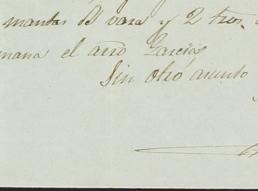 mantas de vara y 2 tros.
mana el arro Garcia
Sin otro asunto